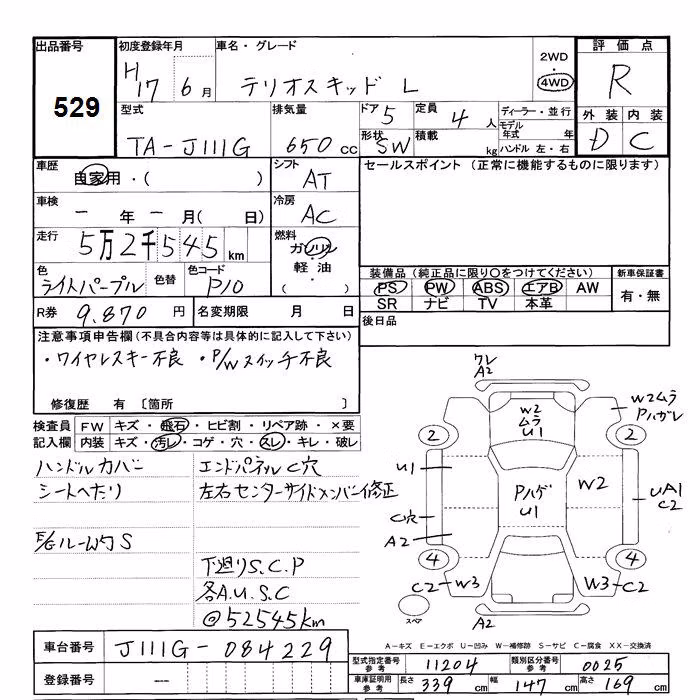 出品番号
529
初度登録年月
H17 6月
車名・グレード
テリオスキッド L
2WD
4WD
評価点
R
外装 内装
D C
型式
TA-J111G
排気量
650cc
ドア 5
形状 SW
定員 4人
積載 kg
ディーラー・並行
モデル年式 年
ハンドル 左・右
車歴
自家用・( )
シフト
AT
セールスポイント (正常に機能するものに限ります)
車検
ー年ー月( 日)
冷房
AC
走行
5万2千545km
燃料
ガソリン
軽油
( )
色
ライトパープル
色替
色コード
P10
装備品 (純正品に限り〇をつけてください)
PS PW ABS エアB AW
SR ナビ TV 本革
新車保証書
有・無
R券 9.870円
名変期限 月 日
後日品
注意事項申告欄 (不具合内容等は具体的に記入して下さい)
・ワイヤレスキー不良 ・P/Wスイッチ不良
修復歴 有 〔箇所 〕
検査員記入欄
FW キズ・飛石・ヒビ割・リペア跡・×要
内装 キズ・汚レ・コゲ・穴・スレ・キレ・破レ
ハンドルカバー
エンドパネルC穴
シートへたり
左右センターサイドメンバー修正
E/gルーム内S
下廻りS.C.P
各A.U.S.C
@52545km
ワレ
A2
W2
ムラ
U1
W2ムラ
Pハガレ
2
2
U1
Pハゲ
U1
W2
UA1
C2
C穴
A2
4
4
C2 W3
W3 C2
スペア
A2
A-キズ E-エクボ U-凹み W-補修跡 S-サビ C-腐食 XX-交換済
車台番号
J111G-084229
登録番号
ー
型式指定番号 参考
11204
類別区分番号 参考
0025
車庫証明用 参考
長さ 339cm
幅 147cm
高さ 169cm